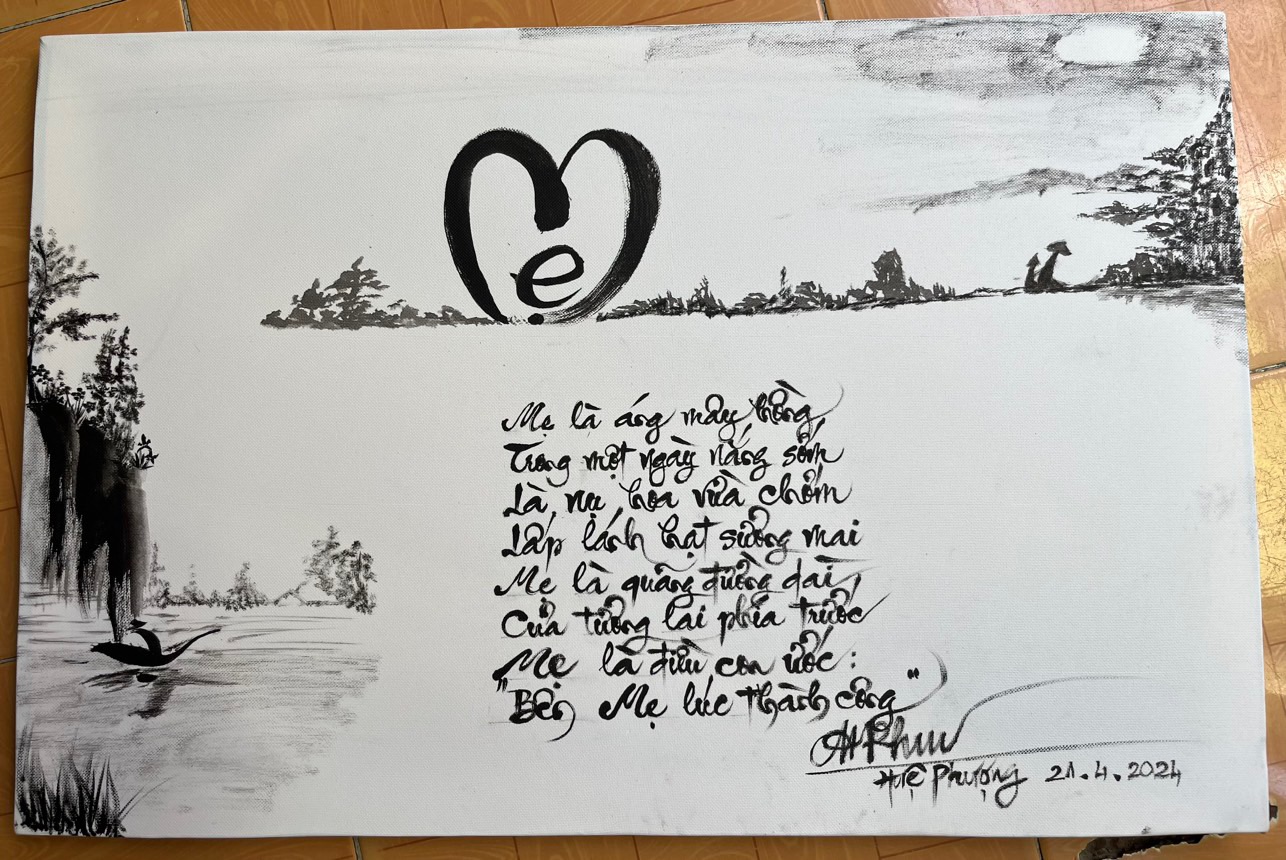 Mẹ
Mẹ là áng mây hồng
Trong một ngày nắng sớm
Là nụ hoa vừa chớm
Lấp lánh hạt sương mai
Mẹ là quãng đường dài
Của tương lai phía trước
Mẹ là điều con ước:
"Bên Mẹ lúc thành công"
Huệ Phượng 21.4.2024